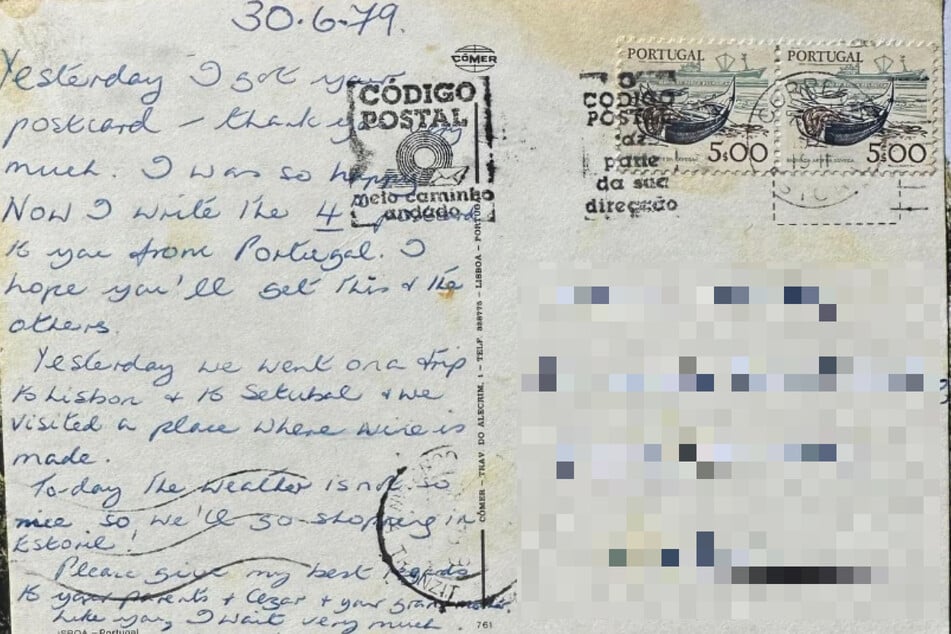 30.6.79.
Yesterday I got your
postcard – thank very
much. I was so happy
Now I write the 4
to you from Portugal. I
hope you'll get this & the
others.
Yesterday we went on a trip
to Lisbon & to Setubal & we
visited a place where wine is
made.
To-day the weather is not so
nice so we'll go shopping in
Estoril!
Please give my best regards
to your parents & Cezar & your grandmother.
Like you, I wait very much.
LISBOA - Portugal
CÓMER
CÓMER – TRAV. DO ALECRIM, 1 – TELF. 328775 – LISBOA – PORTUGAL
761
CÓDIGO
POSTAL
meio caminho
andado
O
CÓDIGO
POSTAL
faz
parte
da sua
direcção
PORTUGAL
5$00
PORTUGAL
5$00